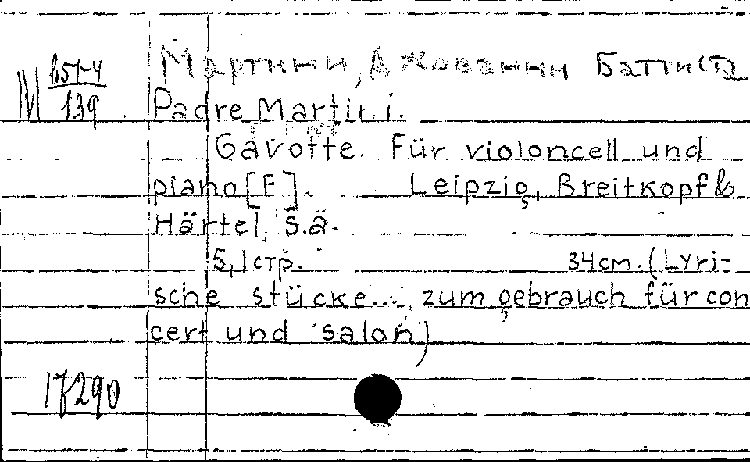 Мартини, Джованни Баттиста
M 651-4
139
Padre Martini.
Gavotte. Für violoncell und
piano [F]. Leipzig, Breitkopf &
Härtel, s.a.
5,1 стр. 34 cm. (Lyri-
sche stücke... zum gebrauch für con
cert und salon)
17290